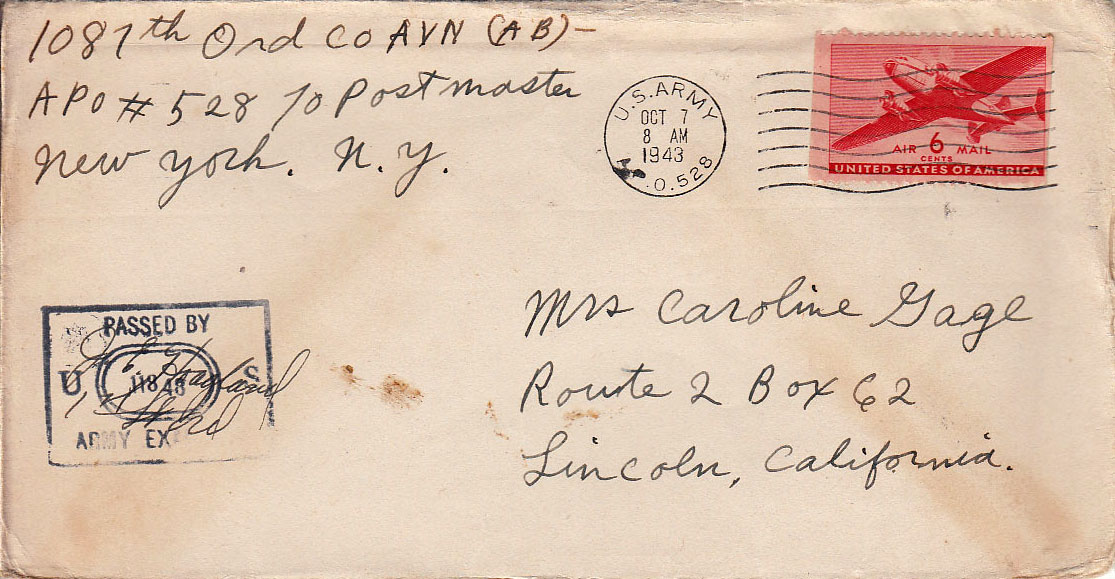 1087th Ord Co AVN (AB)-
APO # 528 % Postmaster
New York. N.Y.
U.S. ARMY
OCT 7
8 AM
1943
A. .O. 528
AIR 6 MAIL
CENTS
UNITED STATES OF AMERICA
PASSED BY
U S
ARMY EX
Mrs Caroline Gage
Route 2 Box 62
Lincoln, California.